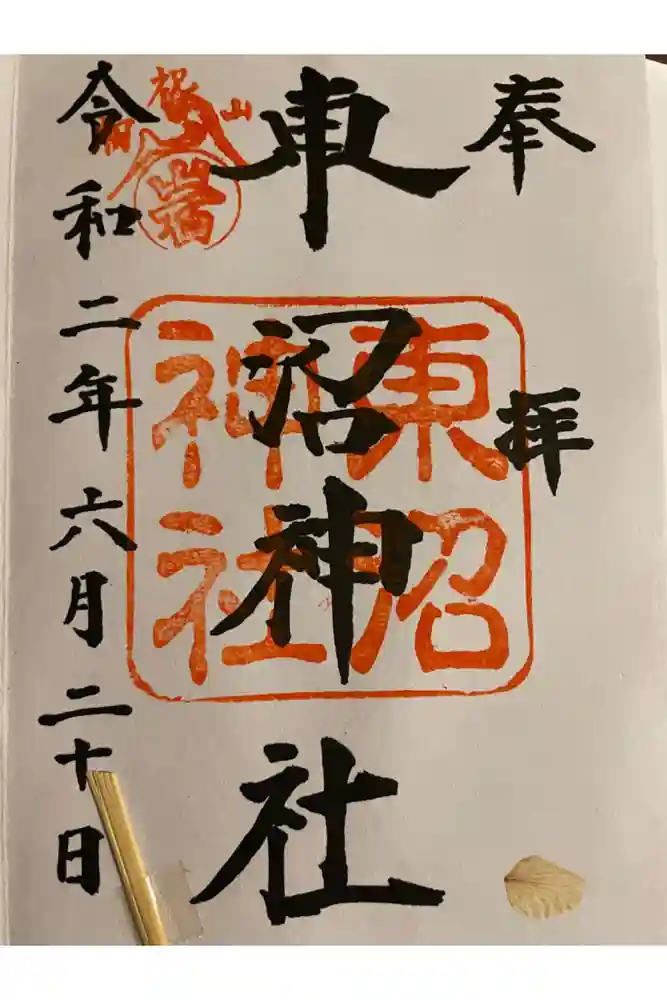 奉拝
東沼神社
令和二年六月二十日
東沼
神社